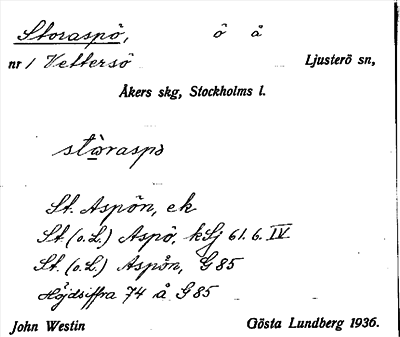 Storaspö, ö å
nr 1 Vettersö Ljusterö sn,
Åkers skg, Stockholms l.
stòraspə
St. Aspön, ek
St. (o. L.) Aspö, kSj 61. 6. IV
St. (o. L.) Aspön, G 85
Höjdsiffra 74 å G 85
John Westin Gösta Lundberg 1936.